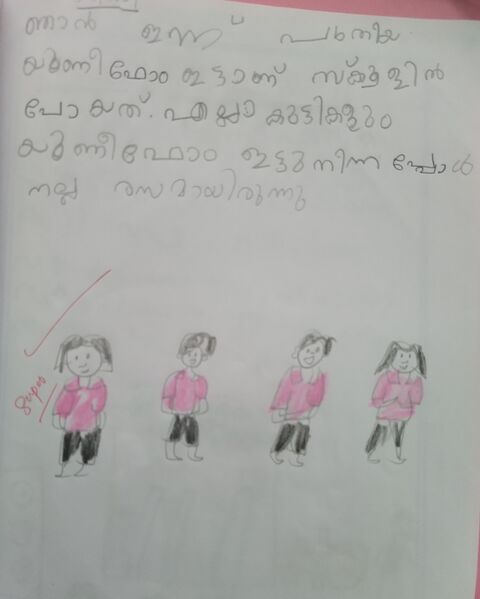 ഞാൻ ഇന്ന് പുതിയ
യുണീഫോം ഇട്ടാണ് സ്ക്കൂളിൽ
പോയത്. എല്ലാ കുട്ടികളും
യുണീഫോം ഇട്ടു നിന്നപ്പോൾ
നല്ല രസമായിരുന്നു
super